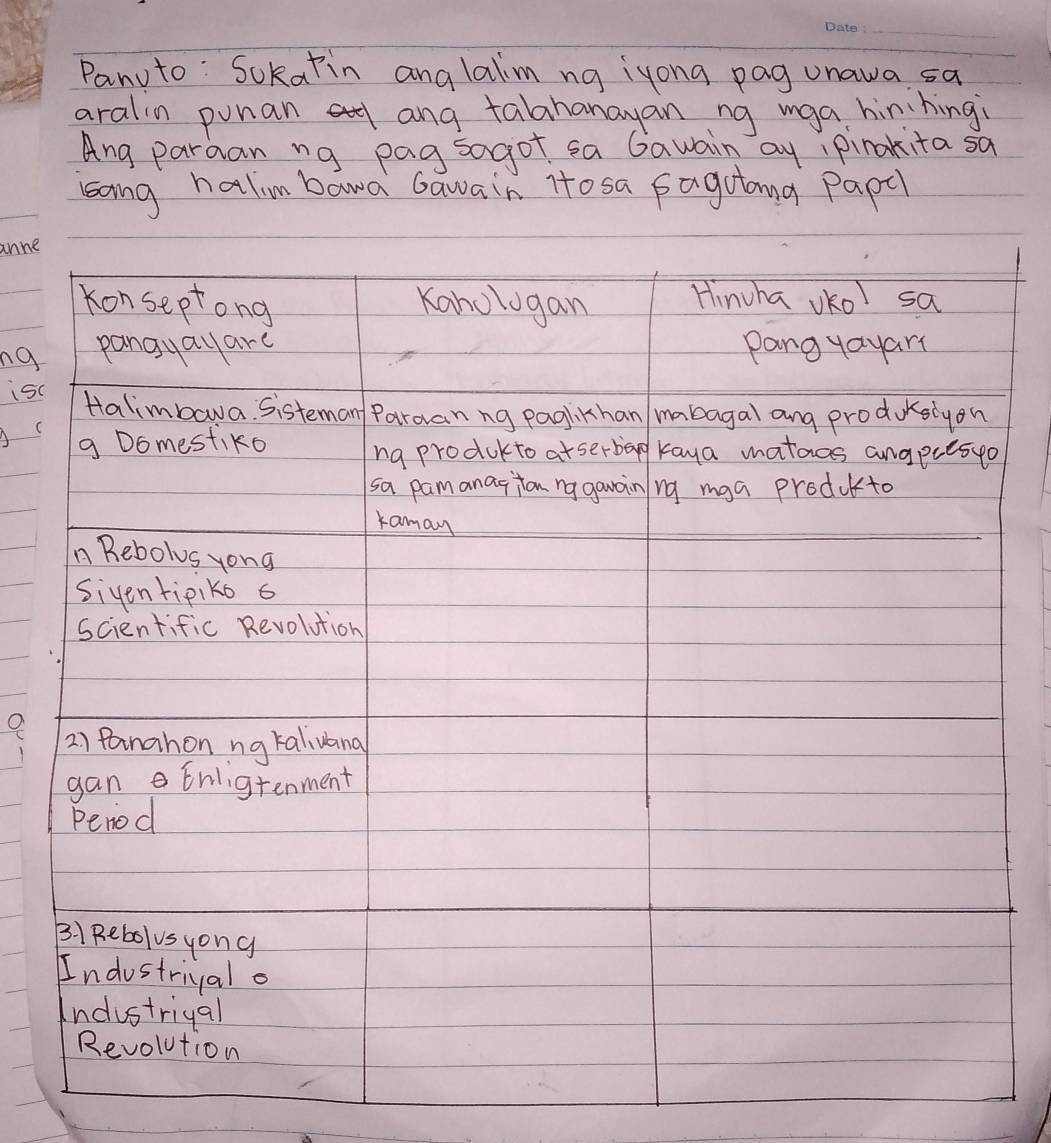 Date:
Panuto: Sukatin ang lalim ng iyong pag unawa sa
aralin punan ang talahanayan ng mga hinihingi
Ang paraan ng pag sagot sa Gawain ay ipinakita sa
isang halim bawa Gawain ito sa sagutang Papel
anne
ng
isc
Konsept ong
pangyayare
Kahulugan
Hinuha ukol sa
Pang yayari
Halimbawa: Sisteman
g Domestiko
Paraan ng paglikhan
ng produkto at serbisyo
sa pamanagitan ng gawain
kamay
mabagal ang produksiyon
kaya mataas ang presyo
ng mga produkto
1) Rebolus yong
Siyentipiko o
Scientific Revolution
2.) Panahon ng kaliwana
gan o Enligtenment
Period
3.) Rebolus yong
Industriyal o
Industriyal
Revolution